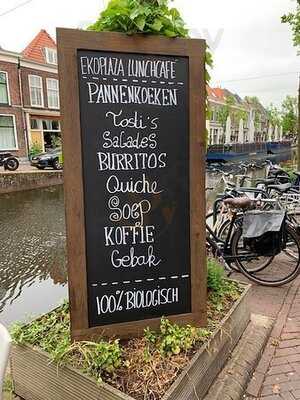 EKOPLAZA LUNCHCAFÉ
PANNENKOEKEN
Tosti's
Salades
BURRITOS
Quiche
Soep
KOFFIE
Gebak
100% BIOLOGISCH